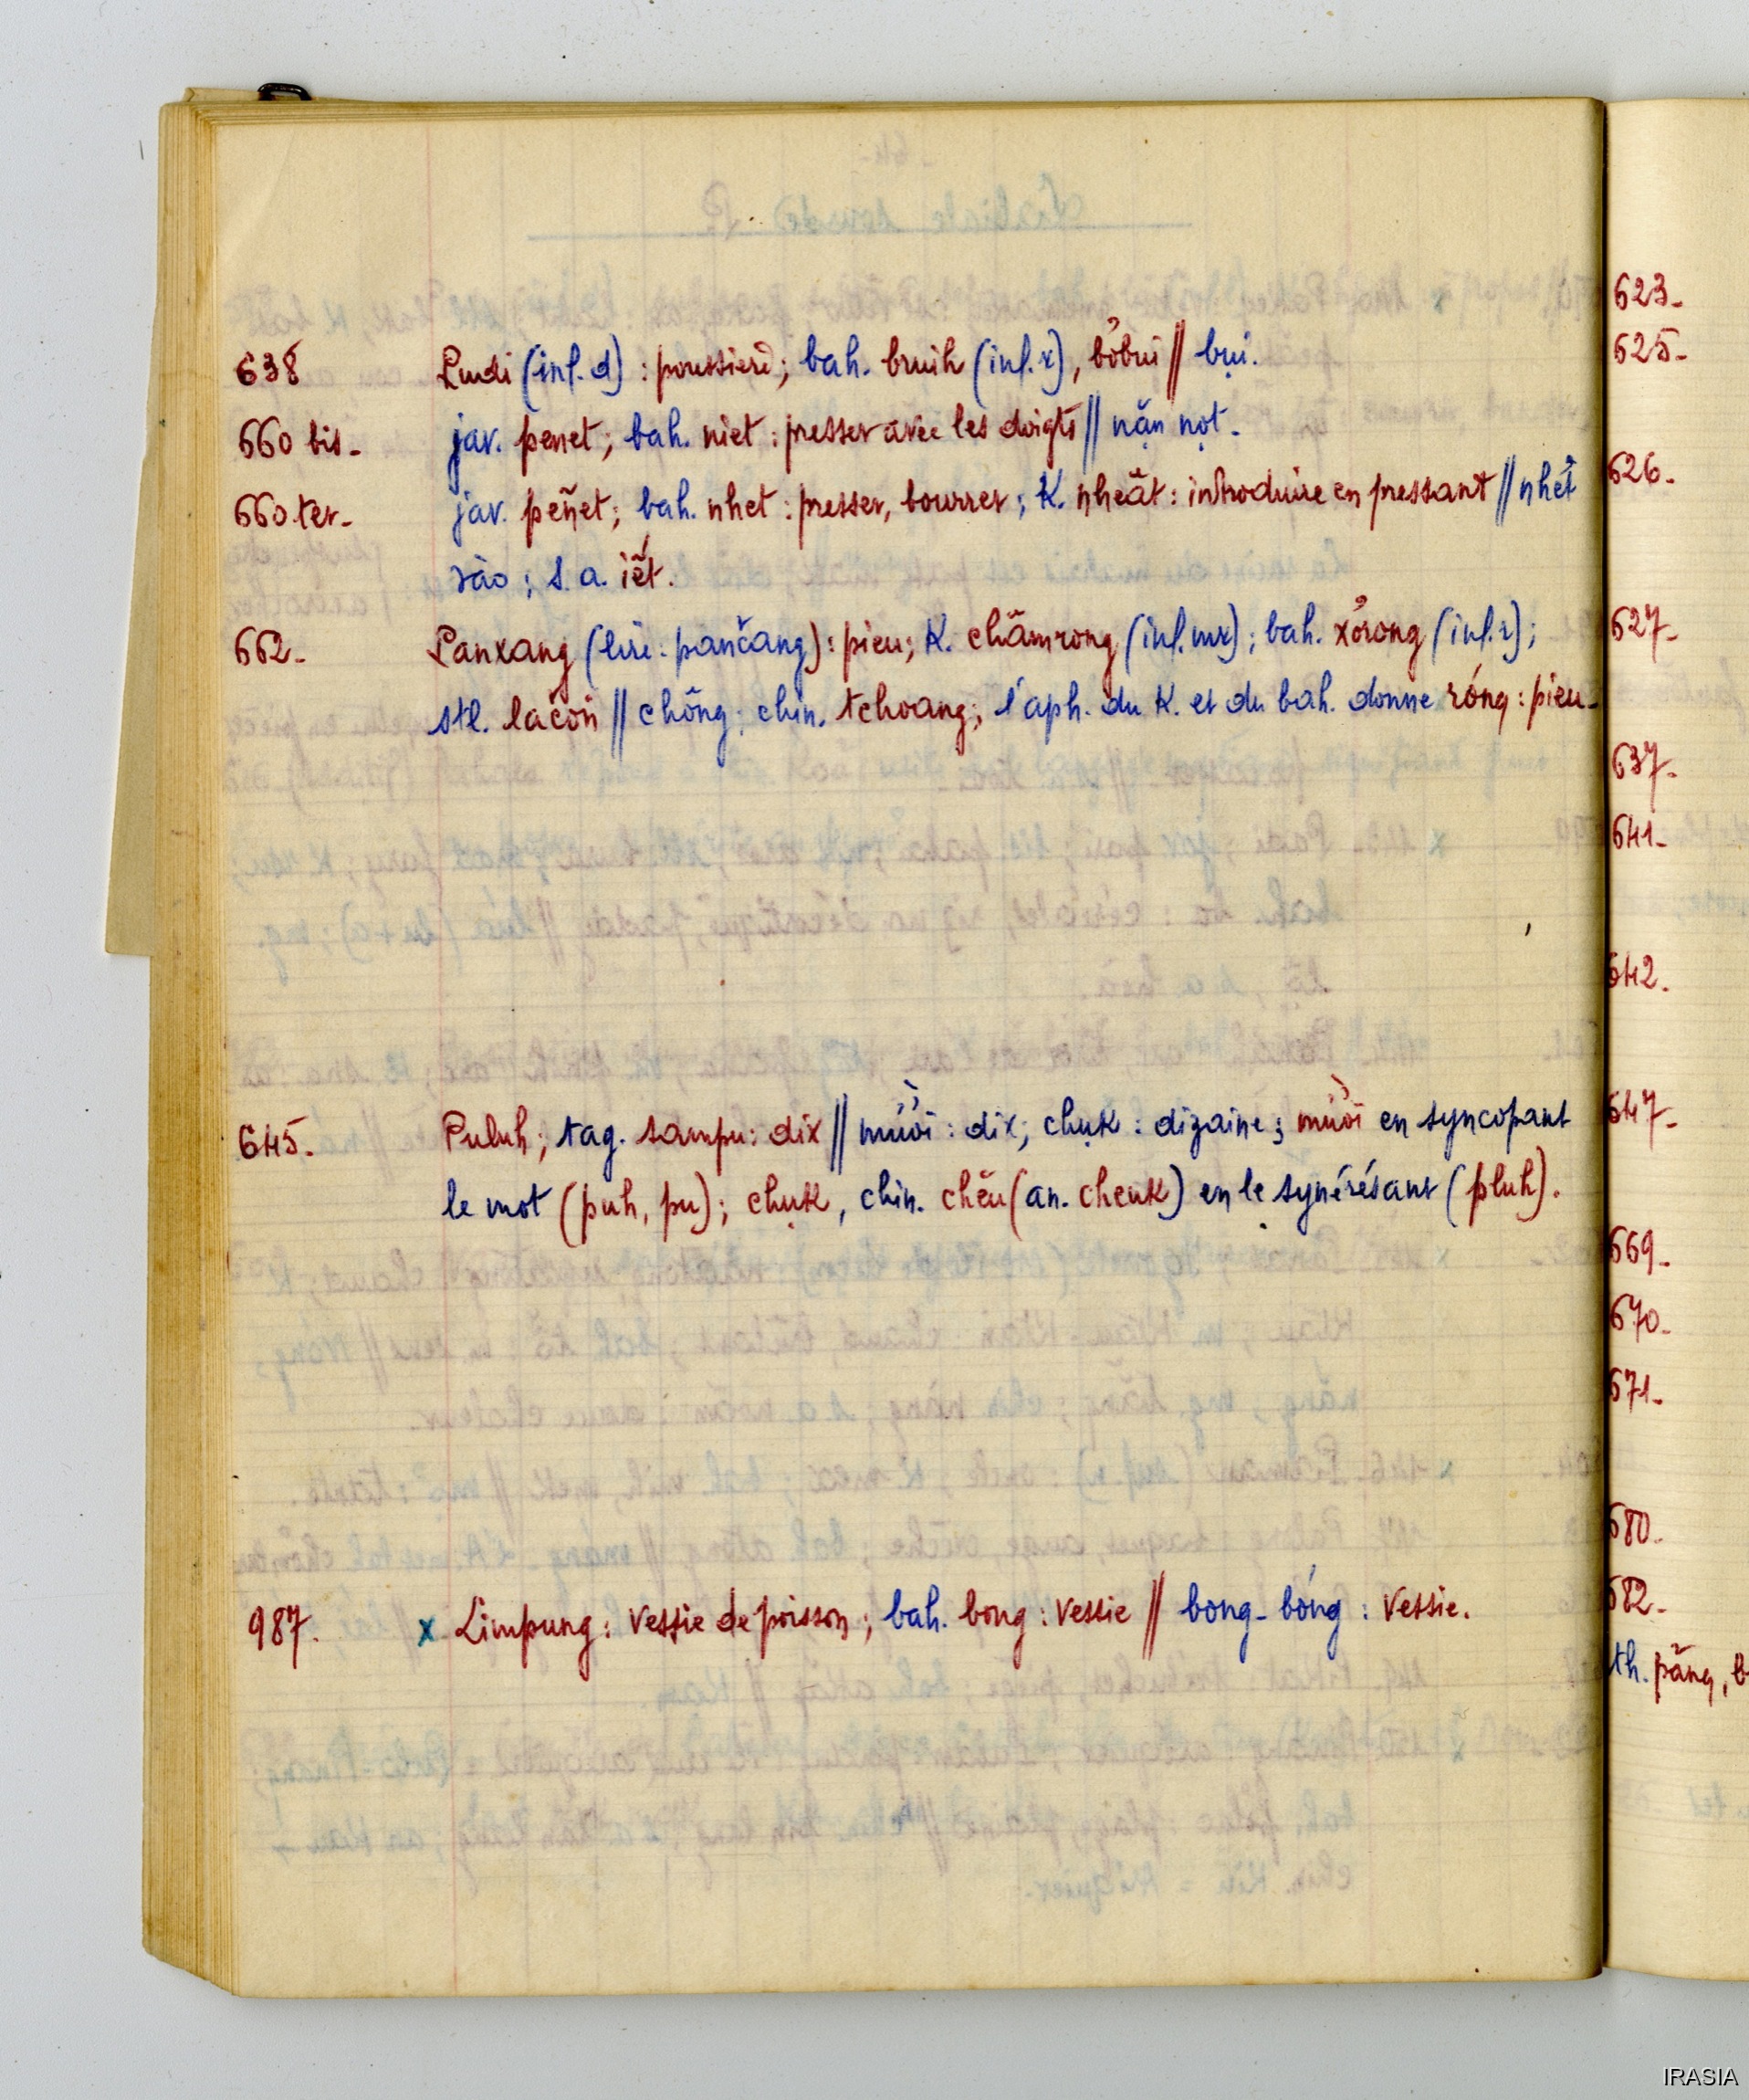 638 Pudi (inf. d) : poussière ; bah. bruih (inf. r), bơ̆bui // bụi.
660 bis. jav. penet ; bah. niet : presser avec les doigts // nặn nọt.
660 ter. jav. peñet ; bah. nhet : presser, bourrer ; K. nheăt : introduire en pressant // nhét
vào ; s. a. iết.
662. Panxang (lire : pančang) : pieu ; K. chămrong (inf. mr) ; bah. xơ̆rong (inf. r) ;
stl. lačon // chông ; chin. tchoang ; l'aph. du K. et du bah. donne róng : pieu.
645. Puluh ; tag. sampu : dix // mười : dix ; chục : dizaine ; mười en syncopant
le mot (puh, pu) ; chụk, chin. chĕu (an. cheuk) en le synérésant (pluh).
987. x Limpung : vessie de poisson ; bah. bong : vessie // bong-bóng : vessie.
623.
625.
626.
627.
637.
641.
642.
647.
669.
670.
671.
680.
682.
th. păng, b
IRASIA